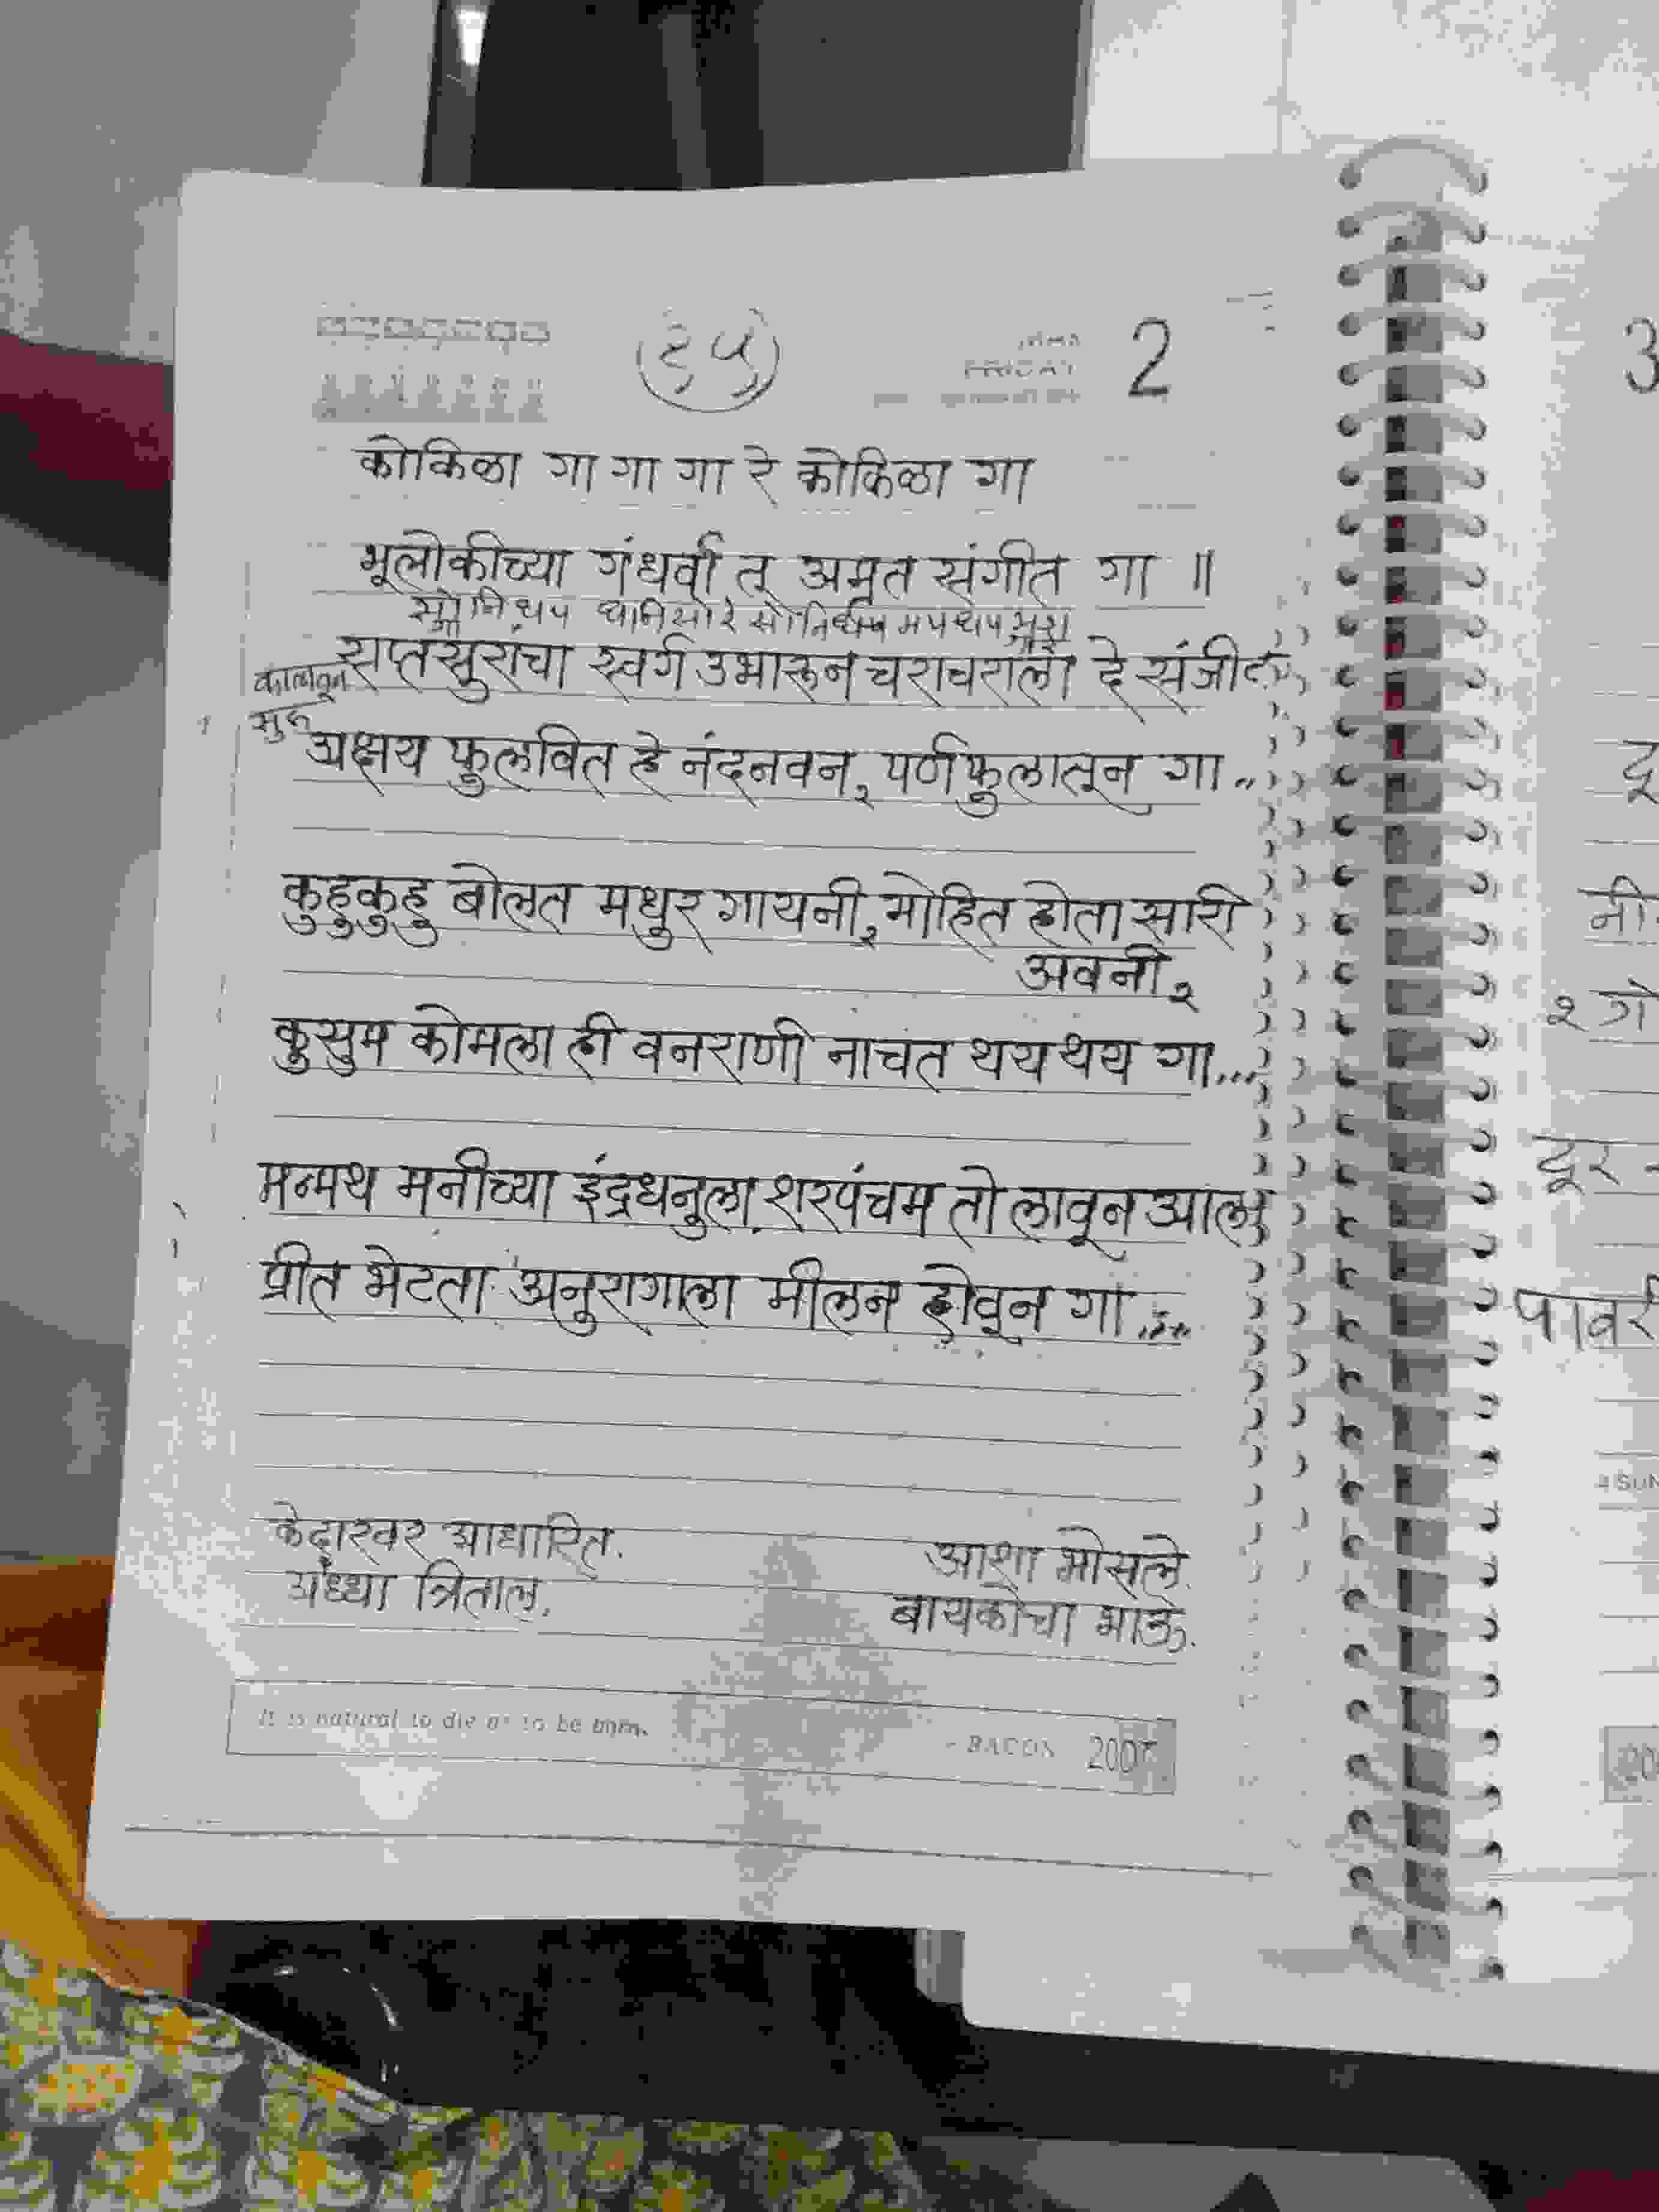 २५
FRIDAY 2
कोकिळा गा गा गा रे कोकिळा गा
भूलोकीच्या गंधर्वा तू अमृत संगीत गा ॥
सप्तसुरांचा स्वर्ग उभारून चराचराला दे संजीवन
काळातून
सुरू
अक्षय फुलवित हे नंदनवन २ पर्णफुलातून गा..
कुहुकुहु बोलत मधुर गायनी २ मोहित होता सारी
अवनी २
कुसुम कोमला ही वनराणी नाचत थय थय गा....
मन्मथ मनीच्या इंद्रधनुला शरपंचम तो लावून आला
प्रीत भेटता अनुरागाला मीलन होवून गा....
केदारस्वर आधारित.
अध्धा त्रिताल.
आशा भोसले.
बायकोचा भाऊ.
It is natural to die as to be born.
- BACON 2007
3
दू
२ गे
दूर
पावरी
4 SUN
20